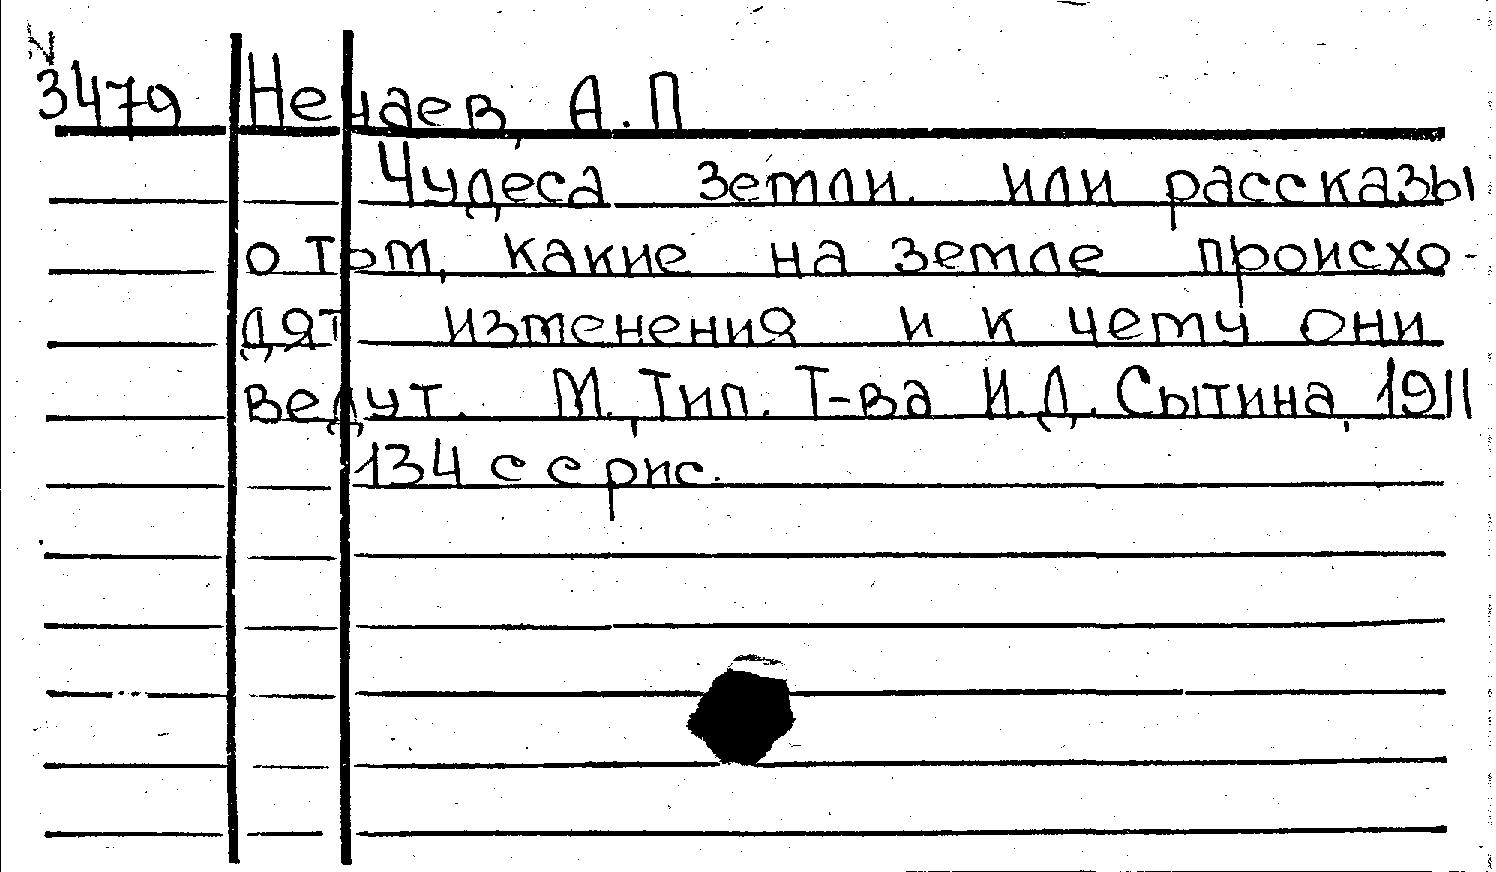 N
3479 Нечаев, А.П
Чудеса земли. или рассказы
о том, какие на земле происхо-
дят изменения и к чему они
ведут. М., Тип. Т-ва И.Д. Сытина, 1911
134 с с рис.